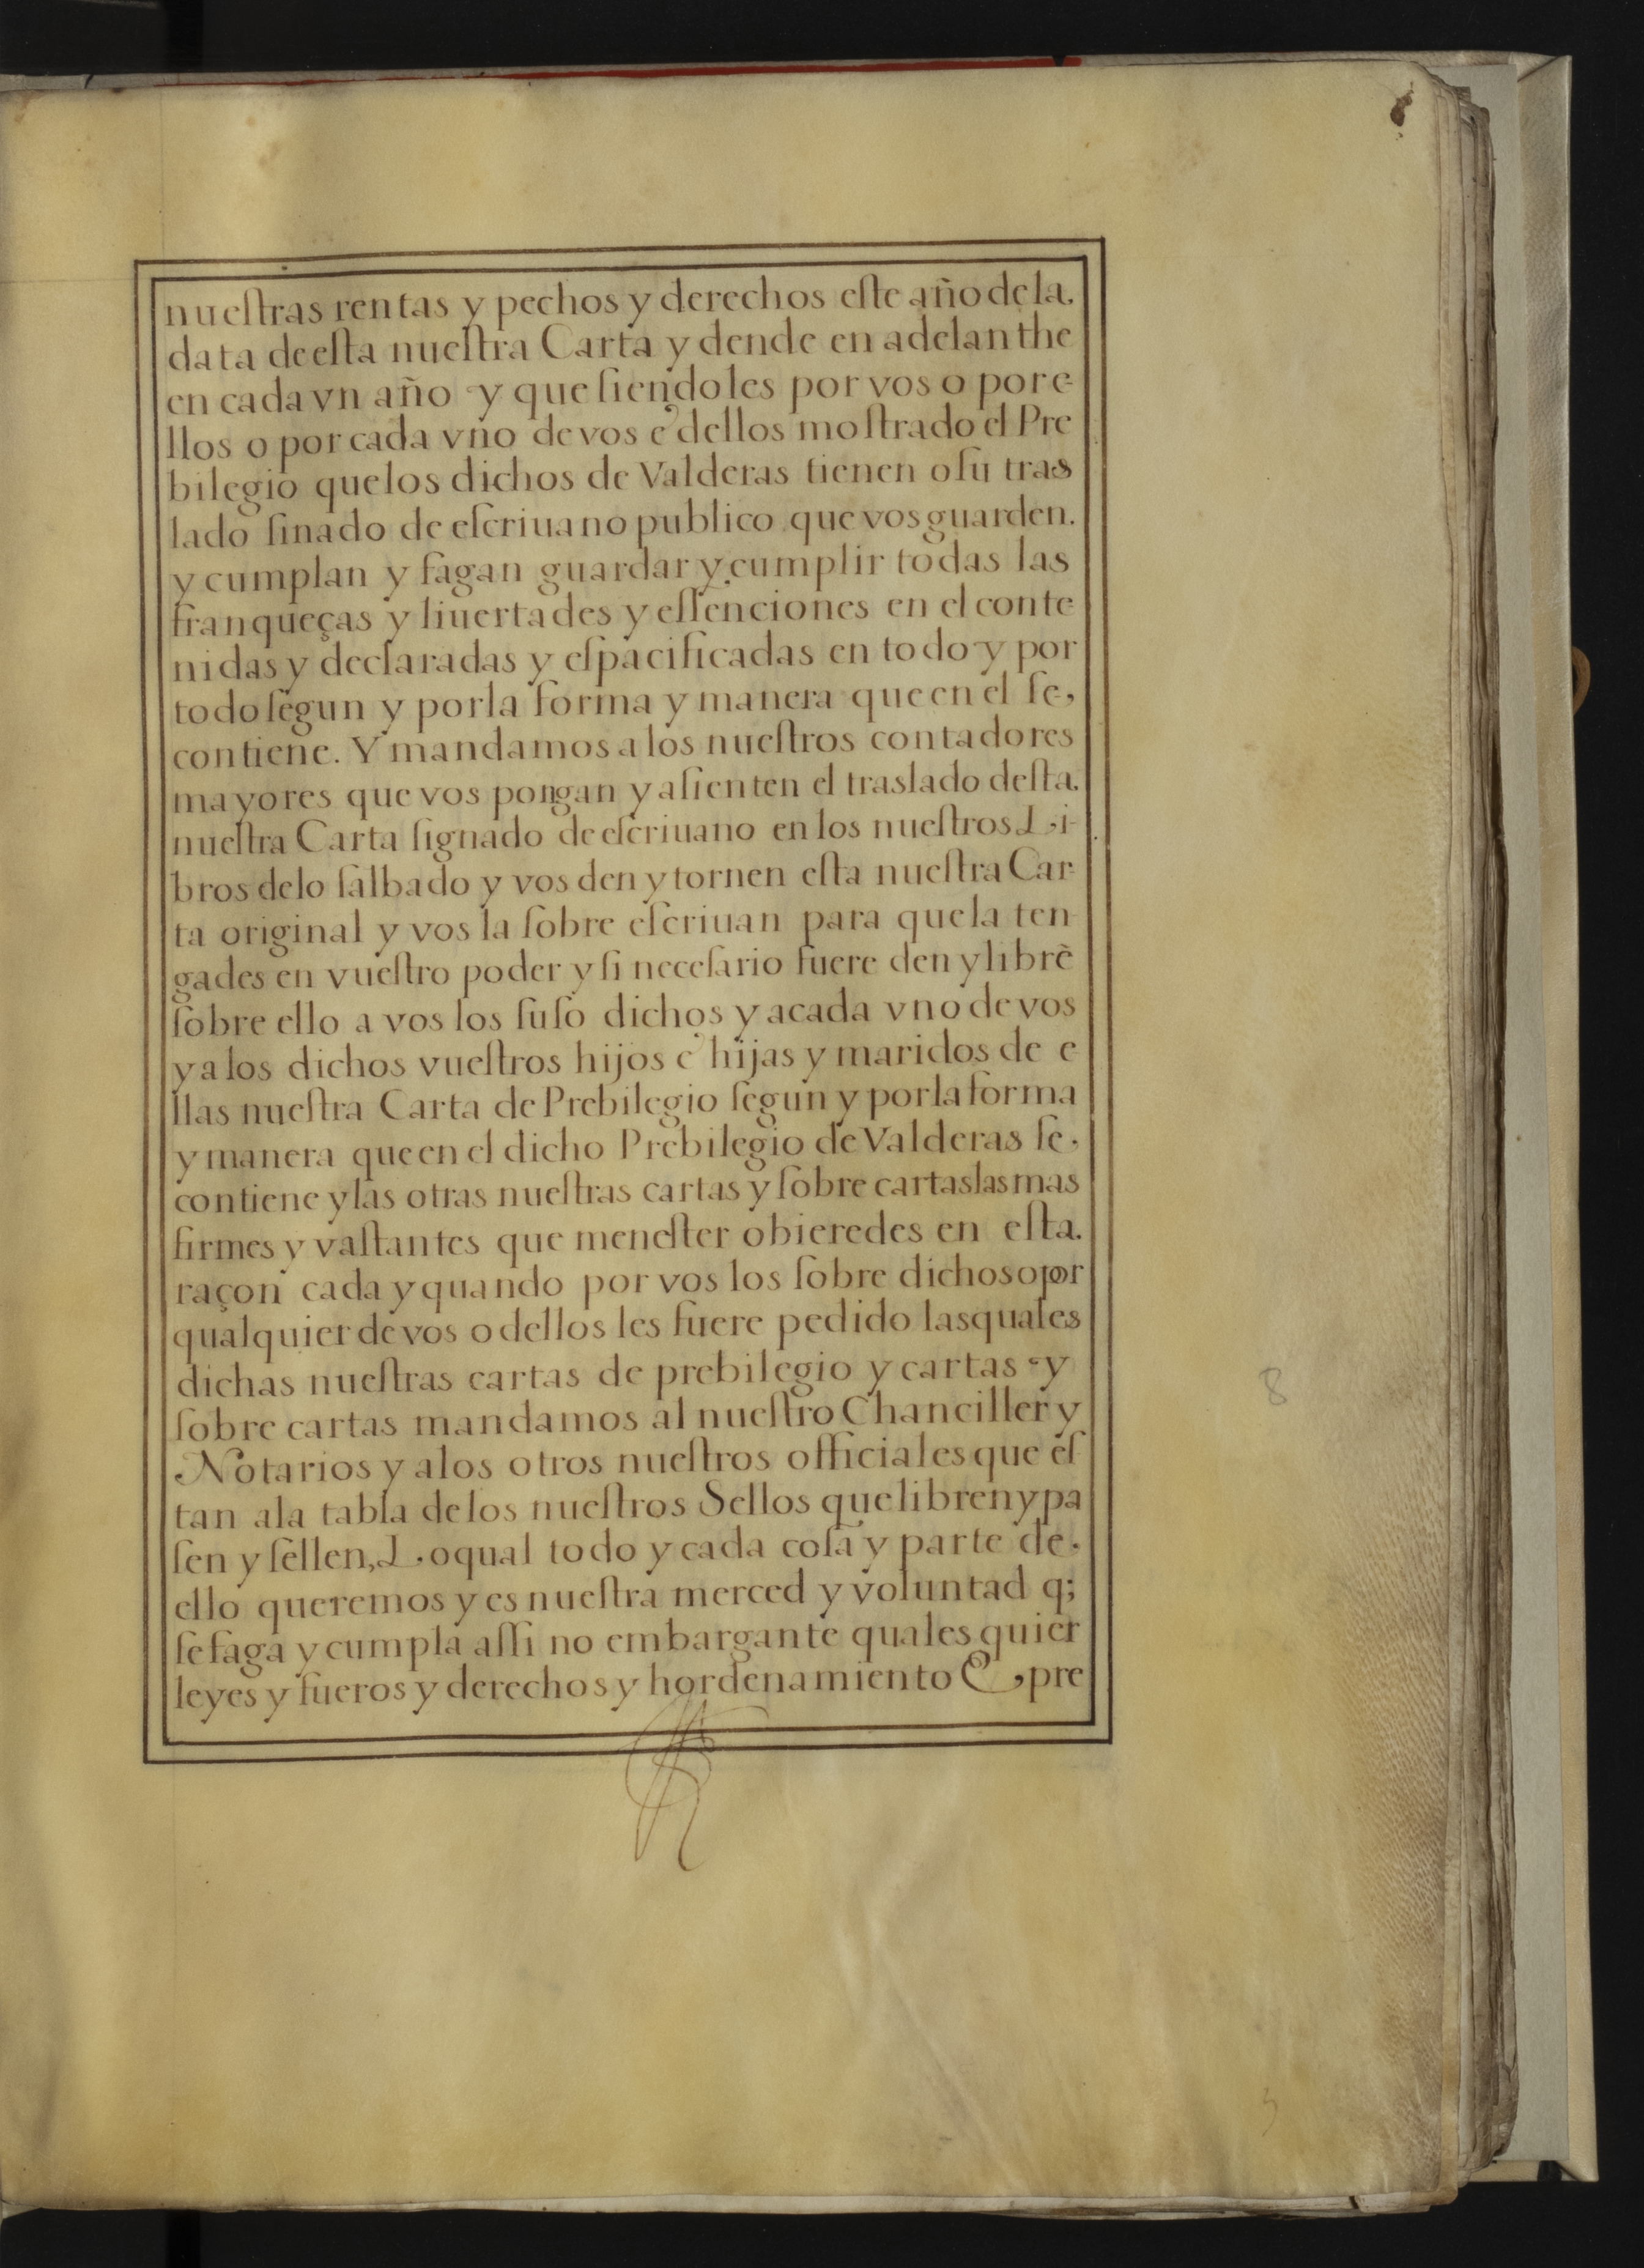 nueſtras rentas y pechos y derechos eſte año de la.
data de eſta nueſtra Carta y dende en adelanthe
en cada vn año y que ſiendoles por vos o por e-
llos o por cada vno de vos e dellos moſtrado el Pre
bilegio que los dichos de Valderas tienen o ſu tras
lado ſinado de eſcriuano publico que vos guarden.
y cumplan y fagan guardar y cumplir todas las
franqueças y liuertades y eſſenciones en el conte
nidas y declaradas y eſpacificadas en todo y por
todo ſegun y por la forma y manera que en el ſe,
contiene. Y mandamos a los nueſtros contadores
mayores que vos pongan y aſienten el traslado deſta.
nueſtra Carta ſignado de eſcriuano en los nueſtros Li-
bros de lo ſalbado y vos den y tornen eſta nueſtra Car-
ta original y vos la ſobre eſcriuan para que la ten-
gades en vueſtro poder y ſi neceſario fuere den y librẽ
ſobre ello a vos los ſuſo dichos y a cada vno de vos
y a los dichos vueſtros hijos e hijas y maridos de e
llas nueſtra Carta de Prebilegio ſegun y por la forma
y manera que en el dicho Prebilegio de Valderas ſe.
contiene y las otras nueſtras cartas y ſobre cartas las mas
firmes y vaſtantes que meneſter obieredes en eſta.
raçon cada y quando por vos los ſobre dichos o por
qualquier de vos o dellos les fuere pedido las quales
dichas nueſtras cartas de prebilegio y cartas y
ſobre cartas mandamos al nueſtro Chanciller y
Notarios y a los otros nueſtros officiales que eſ
tan a la tabla de los nueſtros Sellos que libren y pa
ſen y ſellen, Lo qual todo y cada coſa y parte de.
ello queremos y es nueſtra merced y voluntad q;
ſe faga y cumpla aſſi no embargante quales quier
leyes y fueros y derechos y hordenamiento E, pre
8